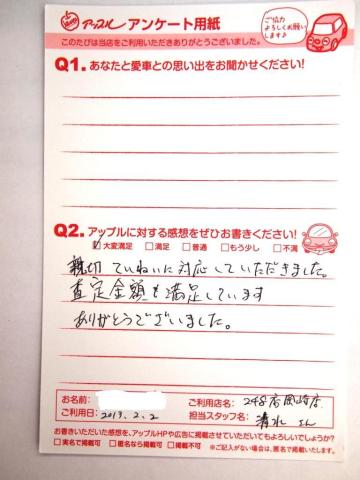 アップル アンケート用紙
このたびは当店をご利用いただきありがとうございました。
ご協力
よろしくお願い
します♪
Q1.あなたと愛車との思い出をお聞かせください!
Q2.アップルに対する感想をぜひお書きください!
☑大変満足 □満足 □普通 □もう少し □不満
親切ていねいに対応していただきました。
査定金額も満足しています
ありがとうございました。
お名前:
ご利用店名: 248店岡崎店
ご利用日: 2013.2.2
担当スタッフ名: 清水 さん
お書きいただいた感想を、アップルHPや広告に掲載させていただいてもよろしいでしょうか?
□実名で掲載可 □匿名なら掲載可 □掲載不可 ※ご記入がない場合は、匿名で掲載いたします。